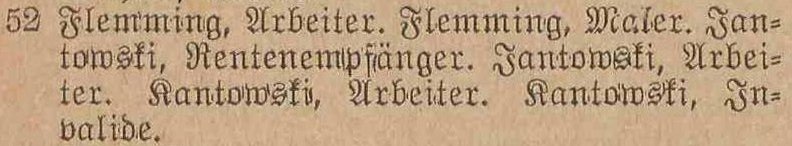 52 Flemming, Arbeiter. Flemming, Maler. Jan-
towski, Rentenempfänger. Jantowski, Arbei-
ter. Kantowski, Arbeiter. Kantowski, In-
valide.